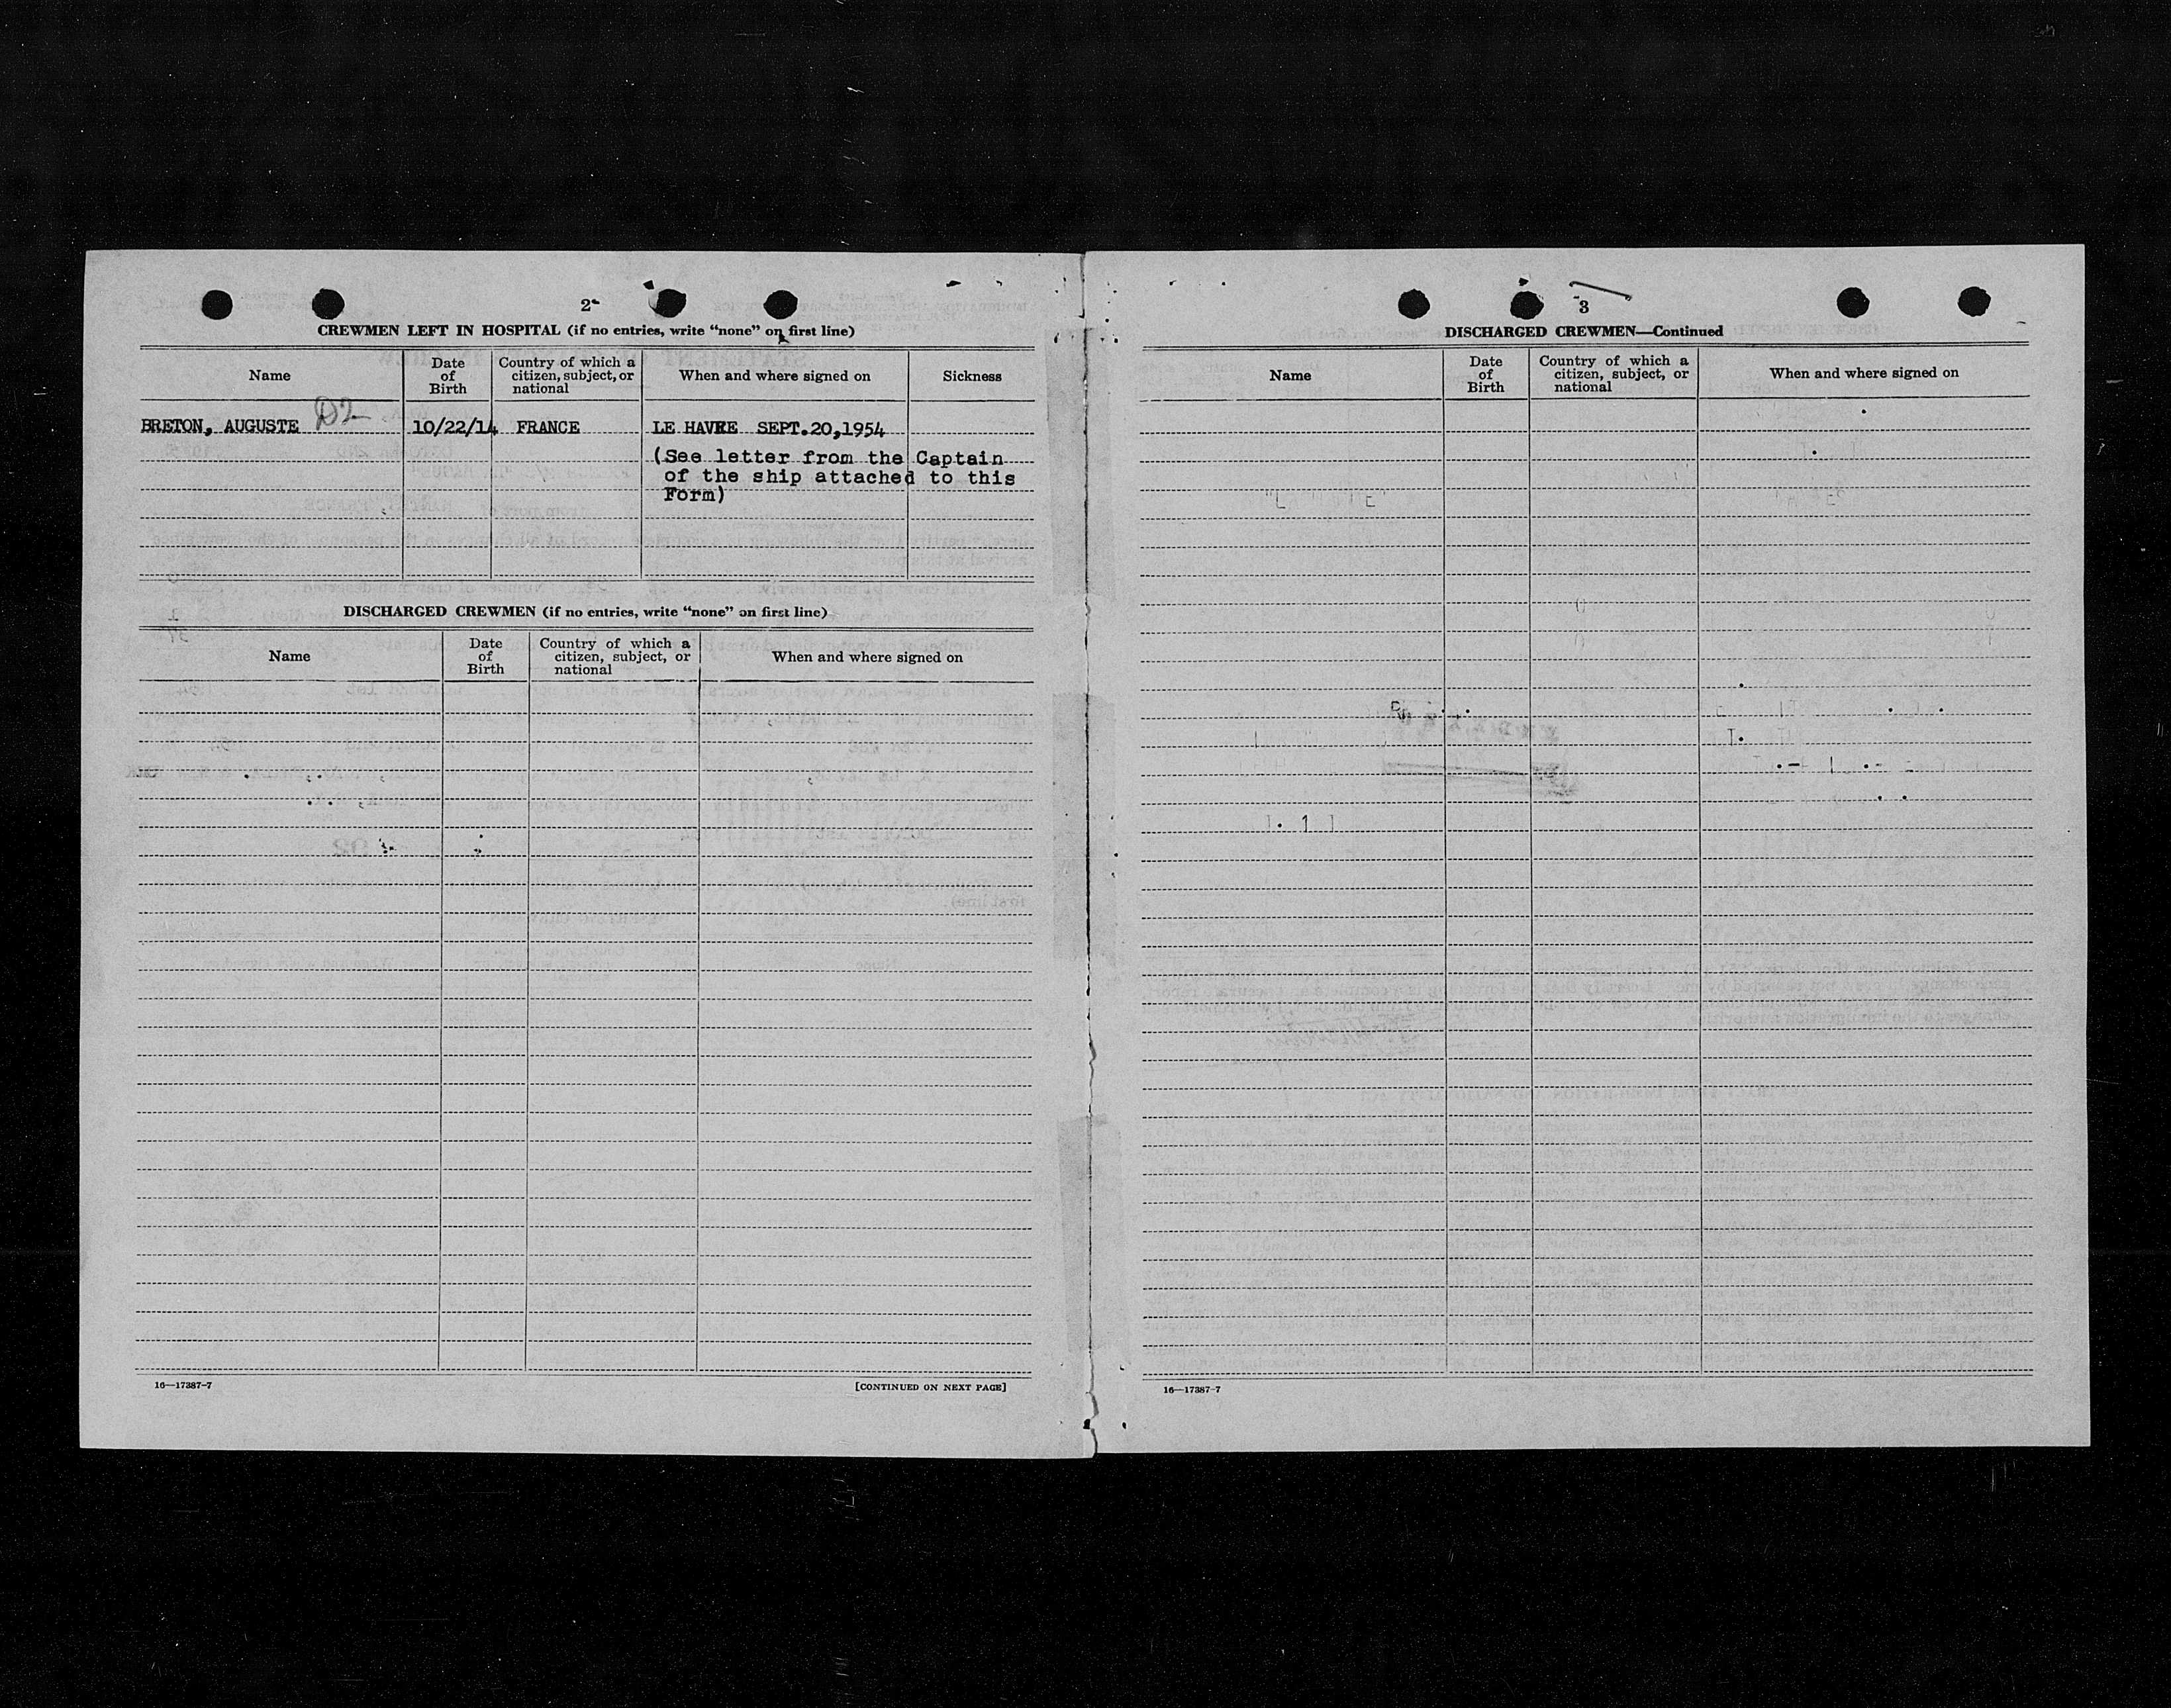 2
CREWMEN LEFT IN HOSPITAL (if no entries, write “none” on first line)
Name
Date of Birth
Country of which a citizen, subject, or national
When and where signed on
Sickness
BRETON, AUGUSTE D2
10/22/14
FRANCE
LE HAVRE SEPT.20,1954
(See letter from the Captain
of the ship attached to this
Form)
DISCHARGED CREWMEN (if no entries, write “none” on first line)
Name
Date of Birth
Country of which a citizen, subject, or national
When and where signed on
16—17387-7
[CONTINUED ON NEXT PAGE]
3
DISCHARGED CREWMEN—Continued
Name
Date of Birth
Country of which a citizen, subject, or national
When and where signed on
16—17387-7